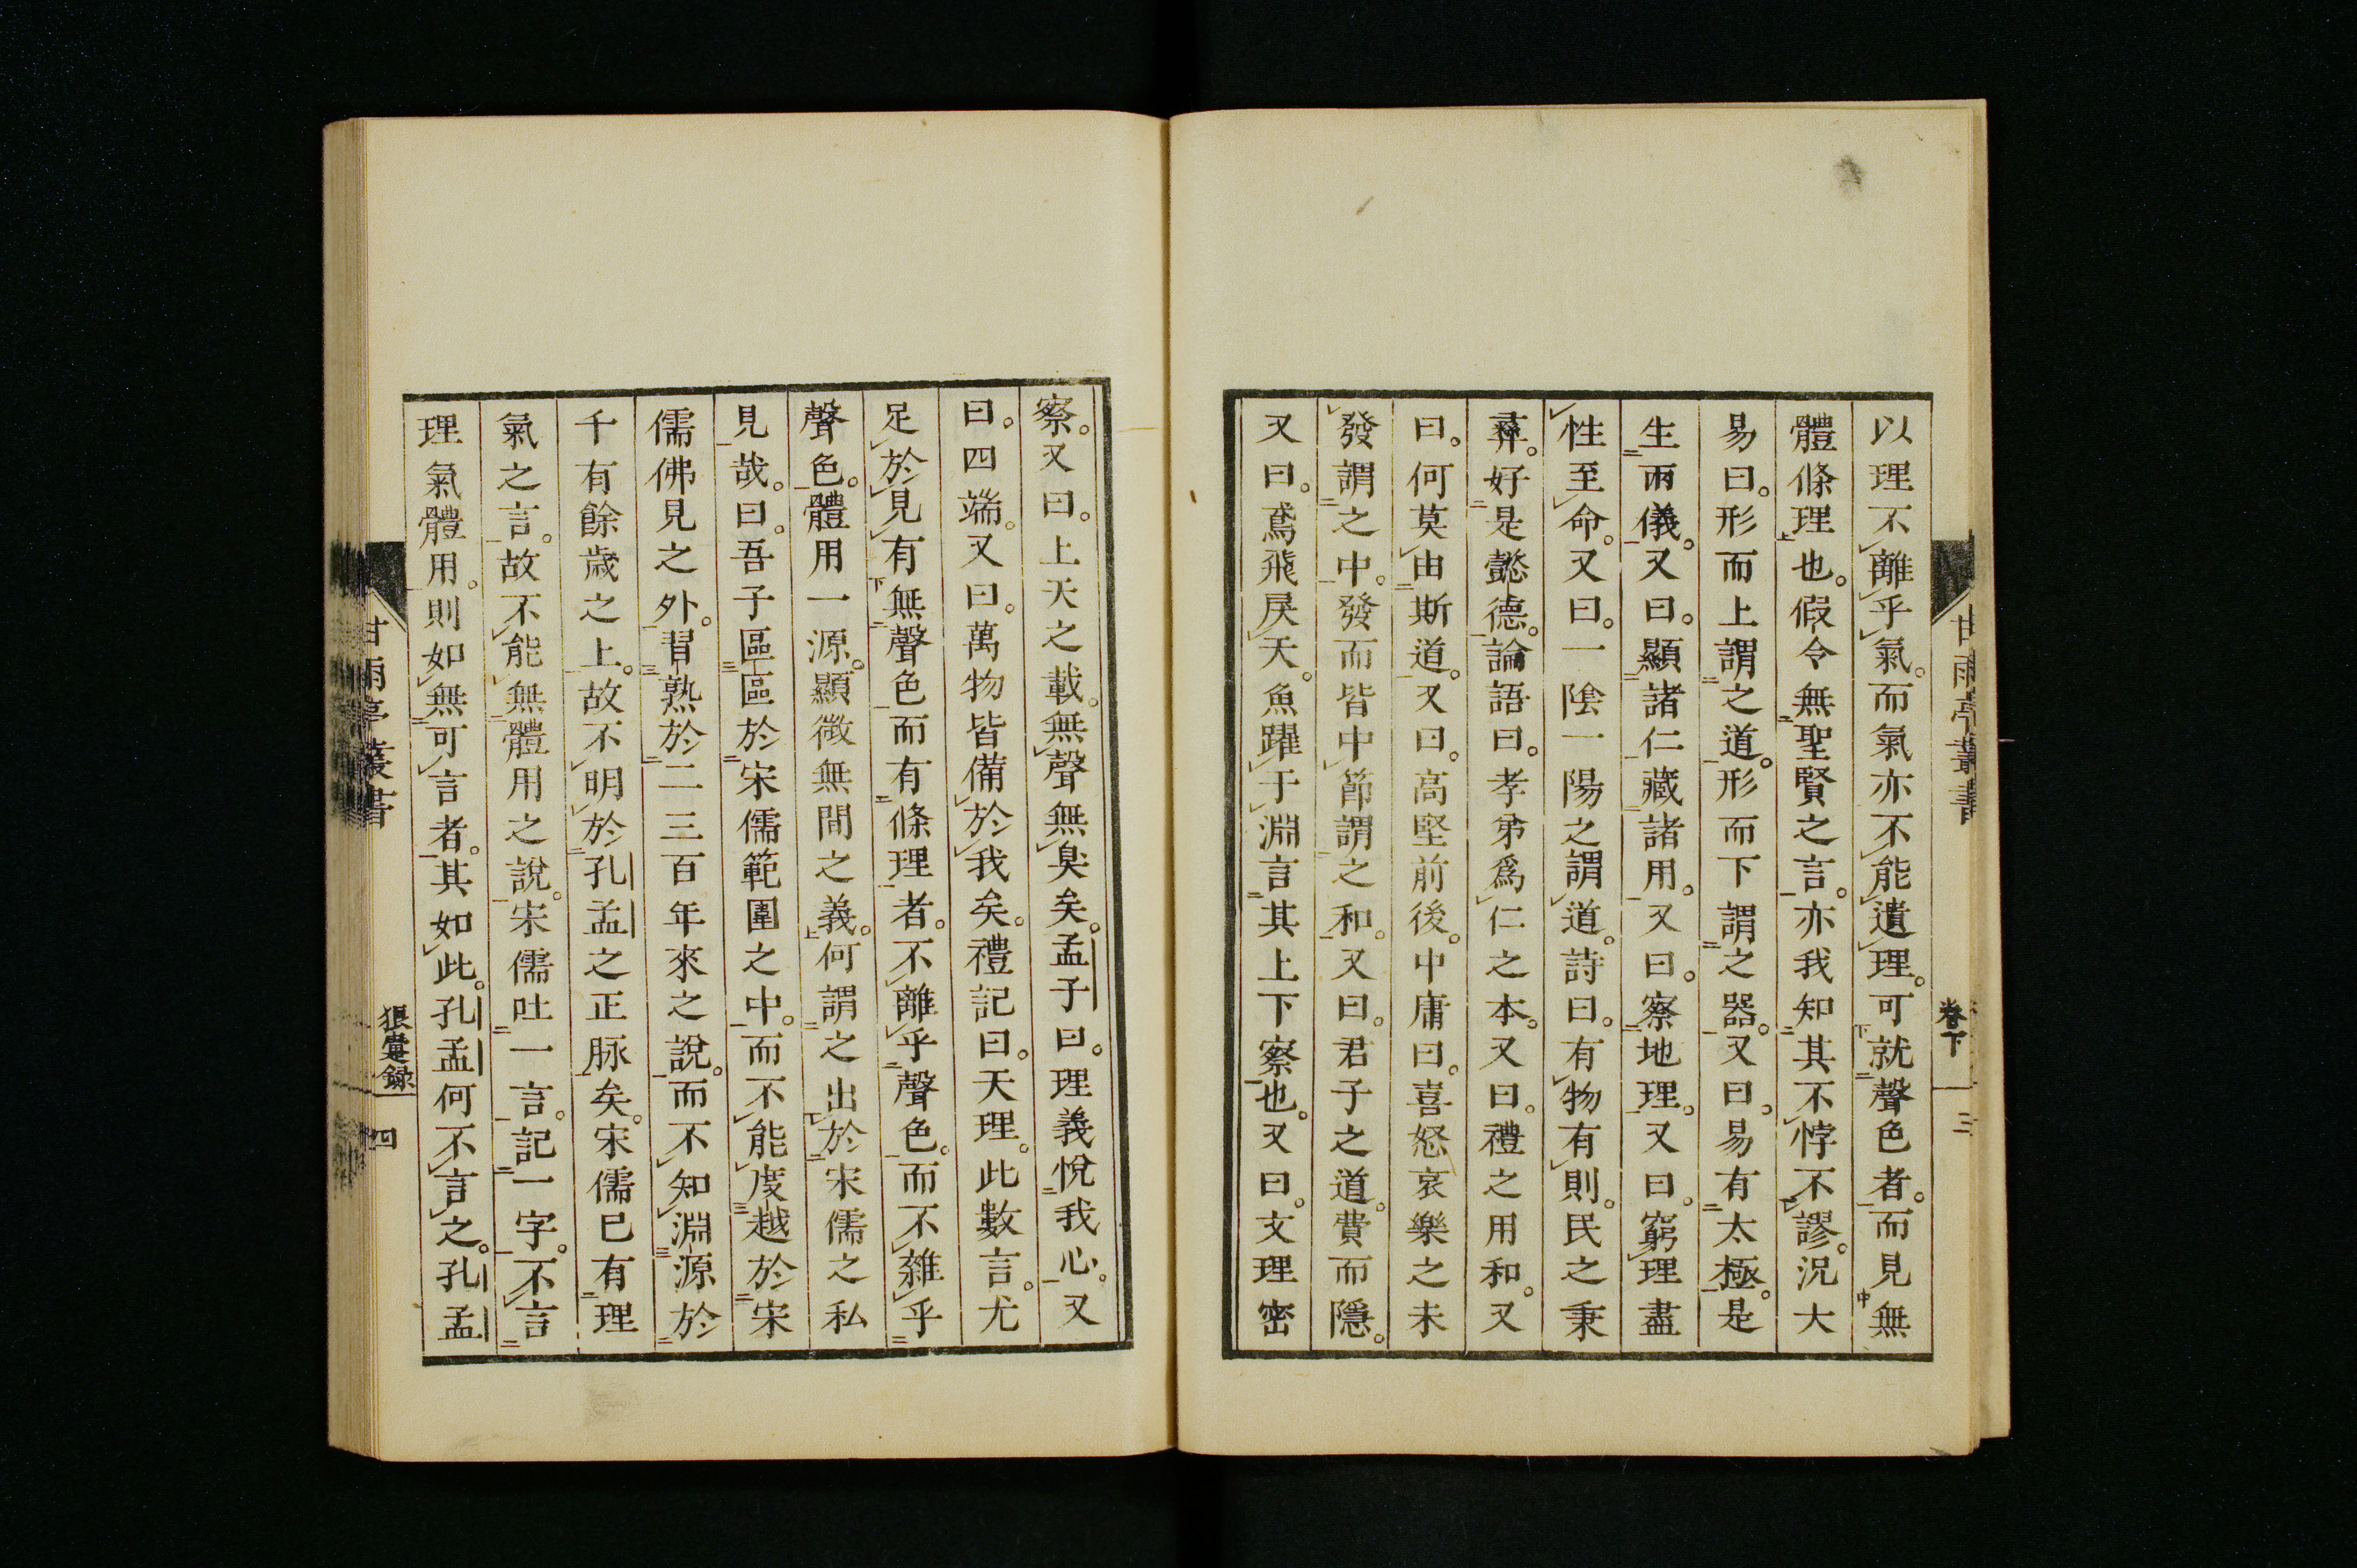 以理不離乎氣。而氣亦不能遺理。可就聲色者。而見無
體條理也。假令無聖賢之言。亦我知其不悖不謬。況大
易曰。形而上謂之道。形而下謂之器。又曰。易有太極。是
生兩儀。又曰。顯諸仁藏諸用。又曰。察地理。又曰。窮理盡
性至命。又曰。一陰一陽之謂道。詩曰。有物有則。民之秉
彛。好是懿德。論語曰。孝弟爲仁之本。又曰。禮之用和。又
曰。何莫由斯道。又曰。高堅前後。中庸曰。喜怒哀樂之未
發謂之中。發而皆中節謂之和。又曰。君子之道。費而隱。
又曰。鳶飛戾天。魚躍于淵言其上下察也。又曰。文理密
甘雨亭叢書
卷下
三
察。又曰。上天之載。無聲無臭矣。孟子曰。理義悅我心。又
曰。四端。又曰。萬物皆備於我矣。禮記曰。天理。此數言。尤
足於見有無聲色而有條理者。不離乎聲色。而不雜乎
聲色。體用一源。顯微無間之義。何謂之出於宋儒之私
見哉。曰。吾子區區於宋儒範圍之中。而不能度越於宋
儒佛見之外。習熟於二三百年來之說。而不知淵源於
千有餘歲之上。故不明於孔孟之正脉矣。宋儒巳有理
氣之言。故不能無體用之說。宋儒吐一言。記一字。不言
理氣體用。則如無可言者。其如此。孔孟何不言之。孔孟
甘雨亭叢書
狼疐録
四